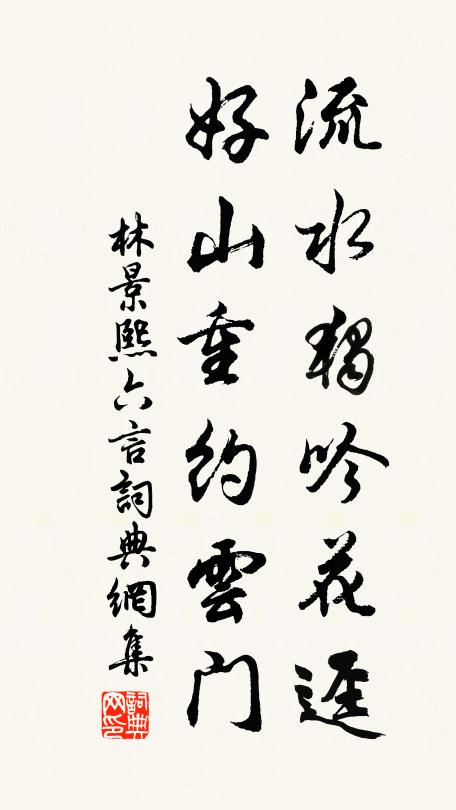 流水獨吟花逕
好山重約雲門
林景熙六言詞典網集
詞典网印